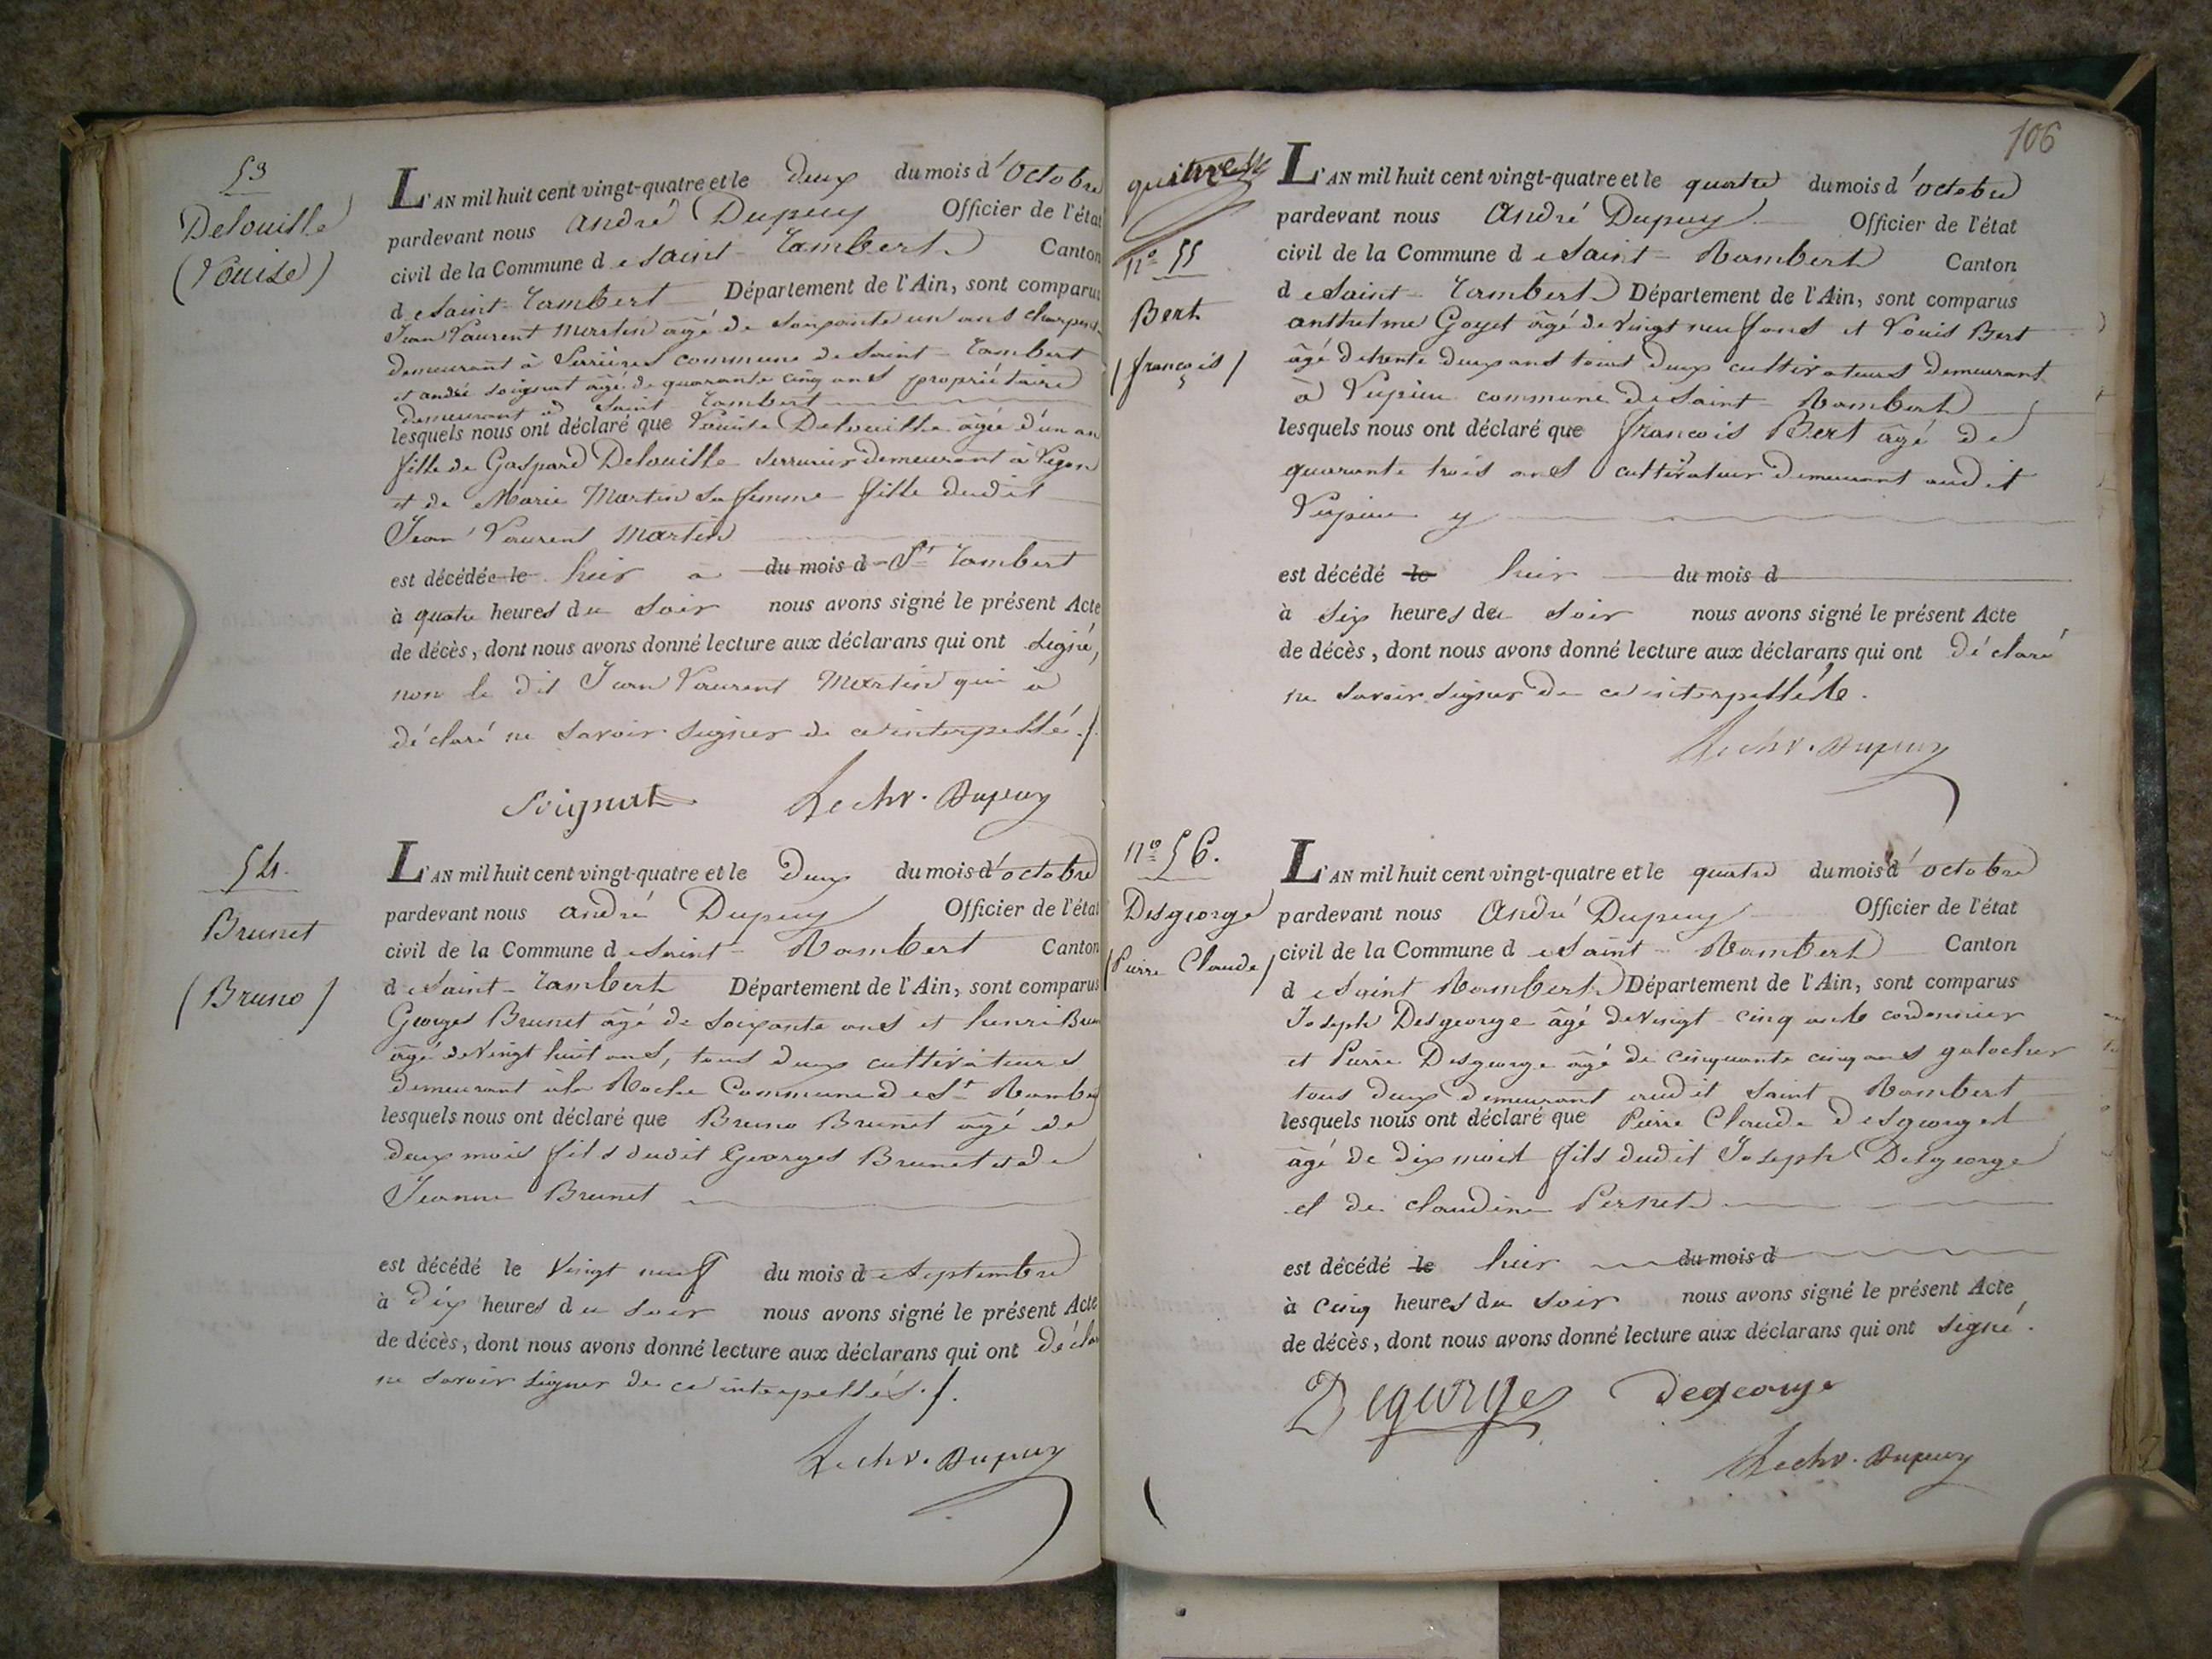 53
Delouille
(Louise)
L'AN mil huit cent vingt-quatre et le deux du mois d'Octobre
pardevant nous André Dupuy Officier de l'état
civil de la Commune de Saint-Rambert Canton
de Saint-Rambert Département de l'Ain, sont comparus
Jean Laurent Martin âgé de soixante un ans charpent
demeurant à Serrières commune de Saint-Rambert
et andré Soignat âgé de quarante cinq ans propriétaire
demeurant à Saint Rambert
lesquels nous ont déclaré que Louise Delouille âgée d'un an
fille de Gaspard Delouille serrurier demeurant à
et de Marie Martin sa femme fille dudit
Jean Laurent Martin
est décédée le hier à du mois d St Rambert
à quatre heures du soir nous avons signé le présent Acte
de décès, dont nous avons donné lecture aux déclarans qui ont signé,
non le dit Jean Laurent Martin qui a
déclaré ne savoir signer de ce interpellé./.
Soignat Le chr. Dupuy
54.
Brunet
(Bruno)
L'AN mil huit cent vingt-quatre et le Deux du mois d'octobre
pardevant nous andré Dupuy Officier de l'état
civil de la Commune de Saint-Rambert Canton
de Saint-Rambert Département de l'Ain, sont comparus
Georges Brunet âgé de soixante ans et henri Brun
âgé de vingt huit ans, tous deux cultivateurs
demeurant à la Roche Commune de St Rambe
lesquels nous ont déclaré que Bruno Brunet âgé de
deux mois fils dudit Georges Brunet et de
Jeanne Brunet
est décédé le vingt neuf du mois de Septembre
à dix heures du soir nous avons signé le présent Acte
de décès, dont nous avons donné lecture aux déclarans qui ont décla
ne savoir signer de ce interpellés./.
Le chr. Dupuy
106
n° 55
Bert
(françois)
L'AN mil huit cent vingt-quatre et le quatre du mois d'octobre
pardevant nous André Dupuy Officier de l'état
civil de la Commune de Saint-Rambert Canton
de Saint-Rambert Département de l'Ain, sont comparus
anthelme Goyet âgé de vingt neuf ans et Louis Bert
âgé de trente deux ans tous deux cultivateurs demeurant
à Lupieu commune de Saint-Rambert
lesquels nous ont déclaré que françois Bert âgé de
quarante trois ans cultivateur demeurant audit
Lupieu y
est décédé le hier du mois d
à six heures du soir nous avons signé le présent Acte
de décès, dont nous avons donné lecture aux déclarans qui ont déclaré
ne savoir signer de ce interpellés.
Le chr. Dupuy
n° 56.
Desgeorge
(Pierre Claude)
L'AN mil huit cent vingt-quatre et le quatre du mois d'octobre
pardevant nous André Dupuy Officier de l'état
civil de la Commune de Saint-Rambert Canton
de Saint Rambert Département de l'Ain, sont comparus
Joseph Desgeorge âgé de vingt-cinq ans cordonnier
et Pierre Desgeorge âgé de cinquante cinq ans galocher
tous deux demeurant audit Saint Rambert
lesquels nous ont déclaré que Pierre Claude Desgeorget
âgé de dix mois fils dudit Joseph Desgeorge
et de claudine Pernet
est décédé le hier du mois d
à cinq heures du soir nous avons signé le présent Acte
de décès, dont nous avons donné lecture aux déclarans qui ont signé.
Degeorges degeorge
Le chr. Dupuy